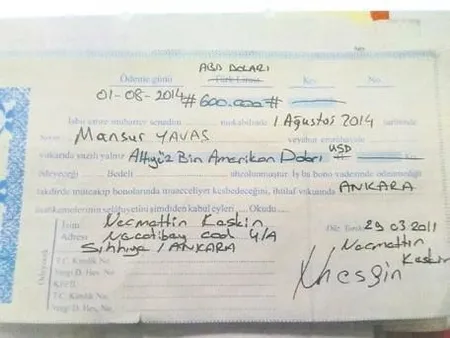 ABD DOLARI
Ödeme günü Türk Lirası Krş No.
01-08-2014 #600.000#
İşbu emre muharrer senedim mukabilinde 1 Ağustos 2014 tarihinde
Mansur YAVAŞ veyahut emrühavale
yukarıda yazılı yalnız Altıyüz Bin Amerikan Doları USD
ödeyeceğim Bedeli ahzolunmuştur. İş bu bono vadesinde ödenmediği
takdirde müteakip bonoların da muacceliyet kesbedeceğini, ihtilaf vukuunda ANKARA
mahkemelerinin selâhiyetini şimdiden kabul eyleri
Necmettin Keskin
Adresi Necatibey cad 4/A
Sıhhıye / ANKARA
T.C. Kimlik No
Vergi D. Hes. No
T.C. Kimlik No.
Vergi D. Hes. No
29 03 2011
Necmettin
Keskin